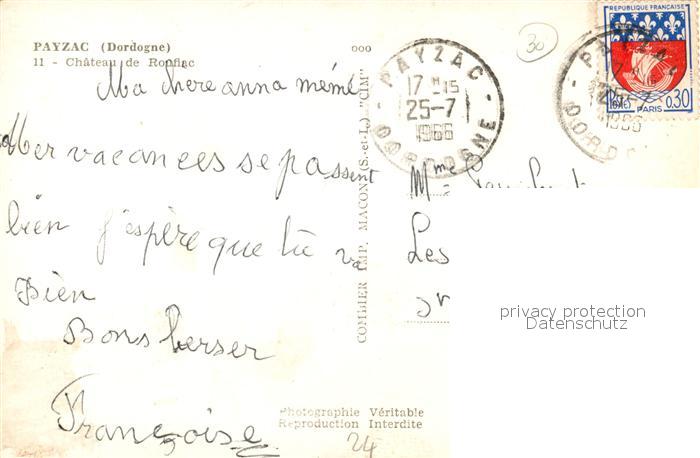 PAYZAC (Dordogne)
11 - Château de Ronfiac
ooo
Ma chere anna mémé
Mer vacances se passent
bien J'espère que tu va
Bien
Bons berser
Françoise
COMBIER IMP. MACON (S.-et-L.) "CIM"
Photographie Véritable
Reproduction Interdite
24
30
PAYZAC
17 H 15
25-7
1966
DORDOGNE
REPUBLIQUE FRANÇAISE
PARIS 0,30
PAYZAC
25-7
1966
Mme
Les
sr
privacy protection
Datenschutz